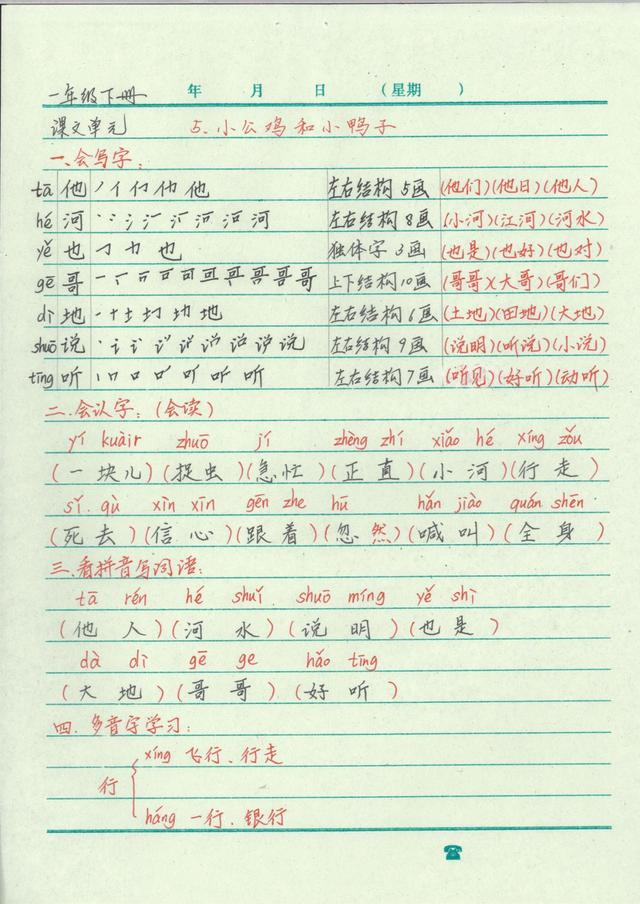 一年级下册 年 月 日 (星期 )
课文单元 5.小公鸡和小鸭子
一.会写字:
tā 他 丿 亻 亻 仲 他 左右结构 5画 (他们)(他日)(他人)
hé 河 丶 冫 氵 汀 河 河 河 左右结构 8画 (小河)(江河)(河水)
yě 也 ㇆ 力 也 独体字 3画 (也是)(也好)(也对)
gē 哥 一 哥 哥 哥 上下结构 10画 (哥哥)(大哥)(哥们)
dì 地 一 十 土 地 左右结构 6画 (土地)(田地)(大地)
shuō 说 丶 讠 说 说 左右结构 9画 (说明)(听说)(小说)
tīng 听 丨 口 口 听 听 左右结构 7画 (听见)(好听)(动听)
二.会认字:(会读)
yí kuàir zhuō jí zhèng zhí xiǎo hé xíng zǒu
(一块儿)(捉虫)(急忙)(正直)(小河)(行走)
sǐ qù xìn xīn gēn zhe hū hǎn jiào quán shēn
(死去)(信心)(跟着)(忽然)(喊叫)(全身)
三.看拼音写词语:
tā rén hé shuǐ shuō míng yě shì
(他人)(河水)(说明)(也是)
dà dì gē ge hǎo tīng
(大地)(哥哥)(好听)
四.多音字学习:
xíng 飞行、行走
行
háng 一行、银行